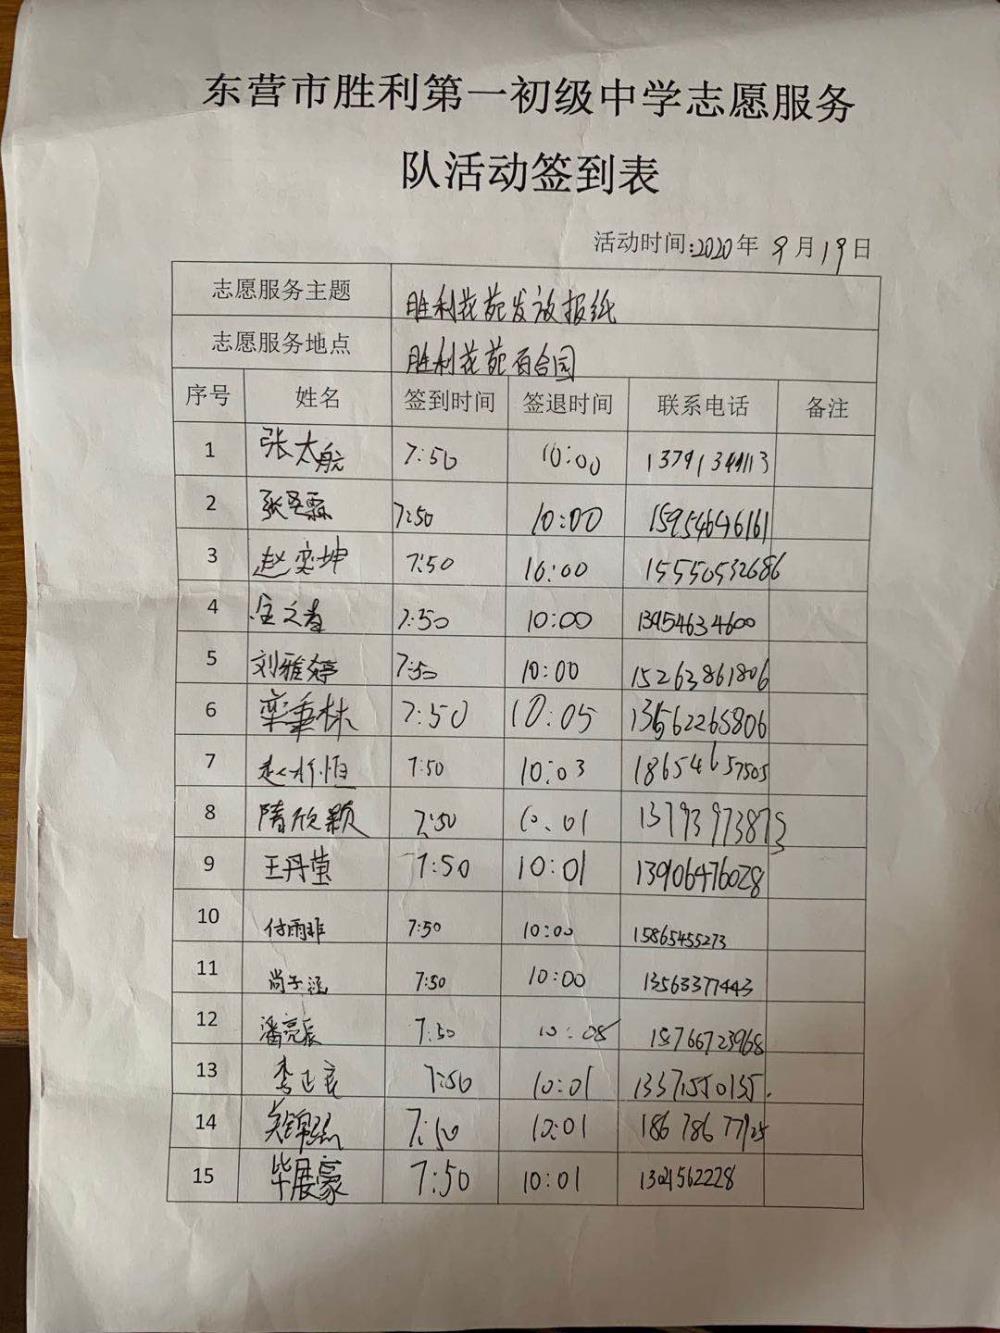 东营市胜利第一初级中学志愿服务
队活动签到表
活动时间:2020年 9月19日
志愿服务主题 胜利花苑发放报纸
志愿服务地点 胜利花苑百合园
序号 姓名 签到时间 签退时间 联系电话 备注
1 张太航 7:50 10:00
2 7:50 10:00 15954646161
3 赵奕坤 7:50 10:00 15550532686
4 7:50 10:00 13954634600
5 刘雅婷 7:50 10:00 15263861806
6 栾秉林 7:50 10:05 13562265806
7 7:50 10:03 18654657505
8 隋欣颖 7:50 10.01 13793973873
9 王丹萤 7:50 10:01 13906476028
10 付雨菲 7:50 10:00 15865455273
11 尚子涵 7:50 10:00 13563377443
12 潘亮辰 7:50 10:05 15766723968
13 7:50 10:01 13371550135.
14 7:50 10:01 18678677925
15 毕展豪 7:50 10:01 1301562228